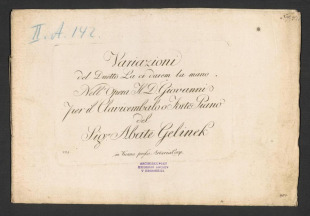 II. A. 142.
Variazioni
del Duetto La ci darem la mano
Nell' Opera Il D. Giovanni
per il Clavicembalo o Forte Piano
del
Sigr. Abate Gelinek
in Vienna presso